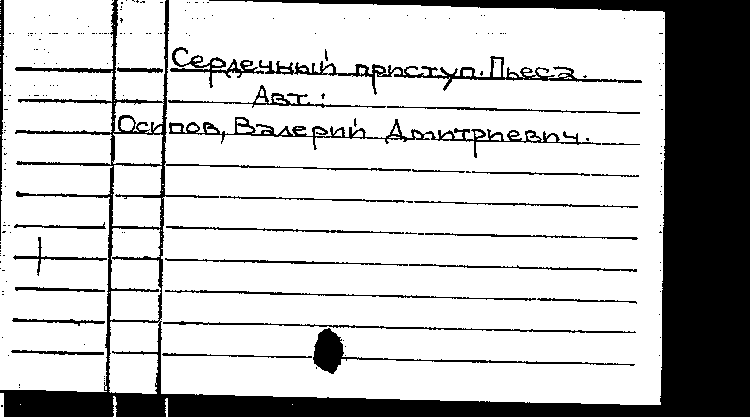 Сердечный приступ. Пьеса.
Авт.:
Осипов, Валерий Дмитриевич.